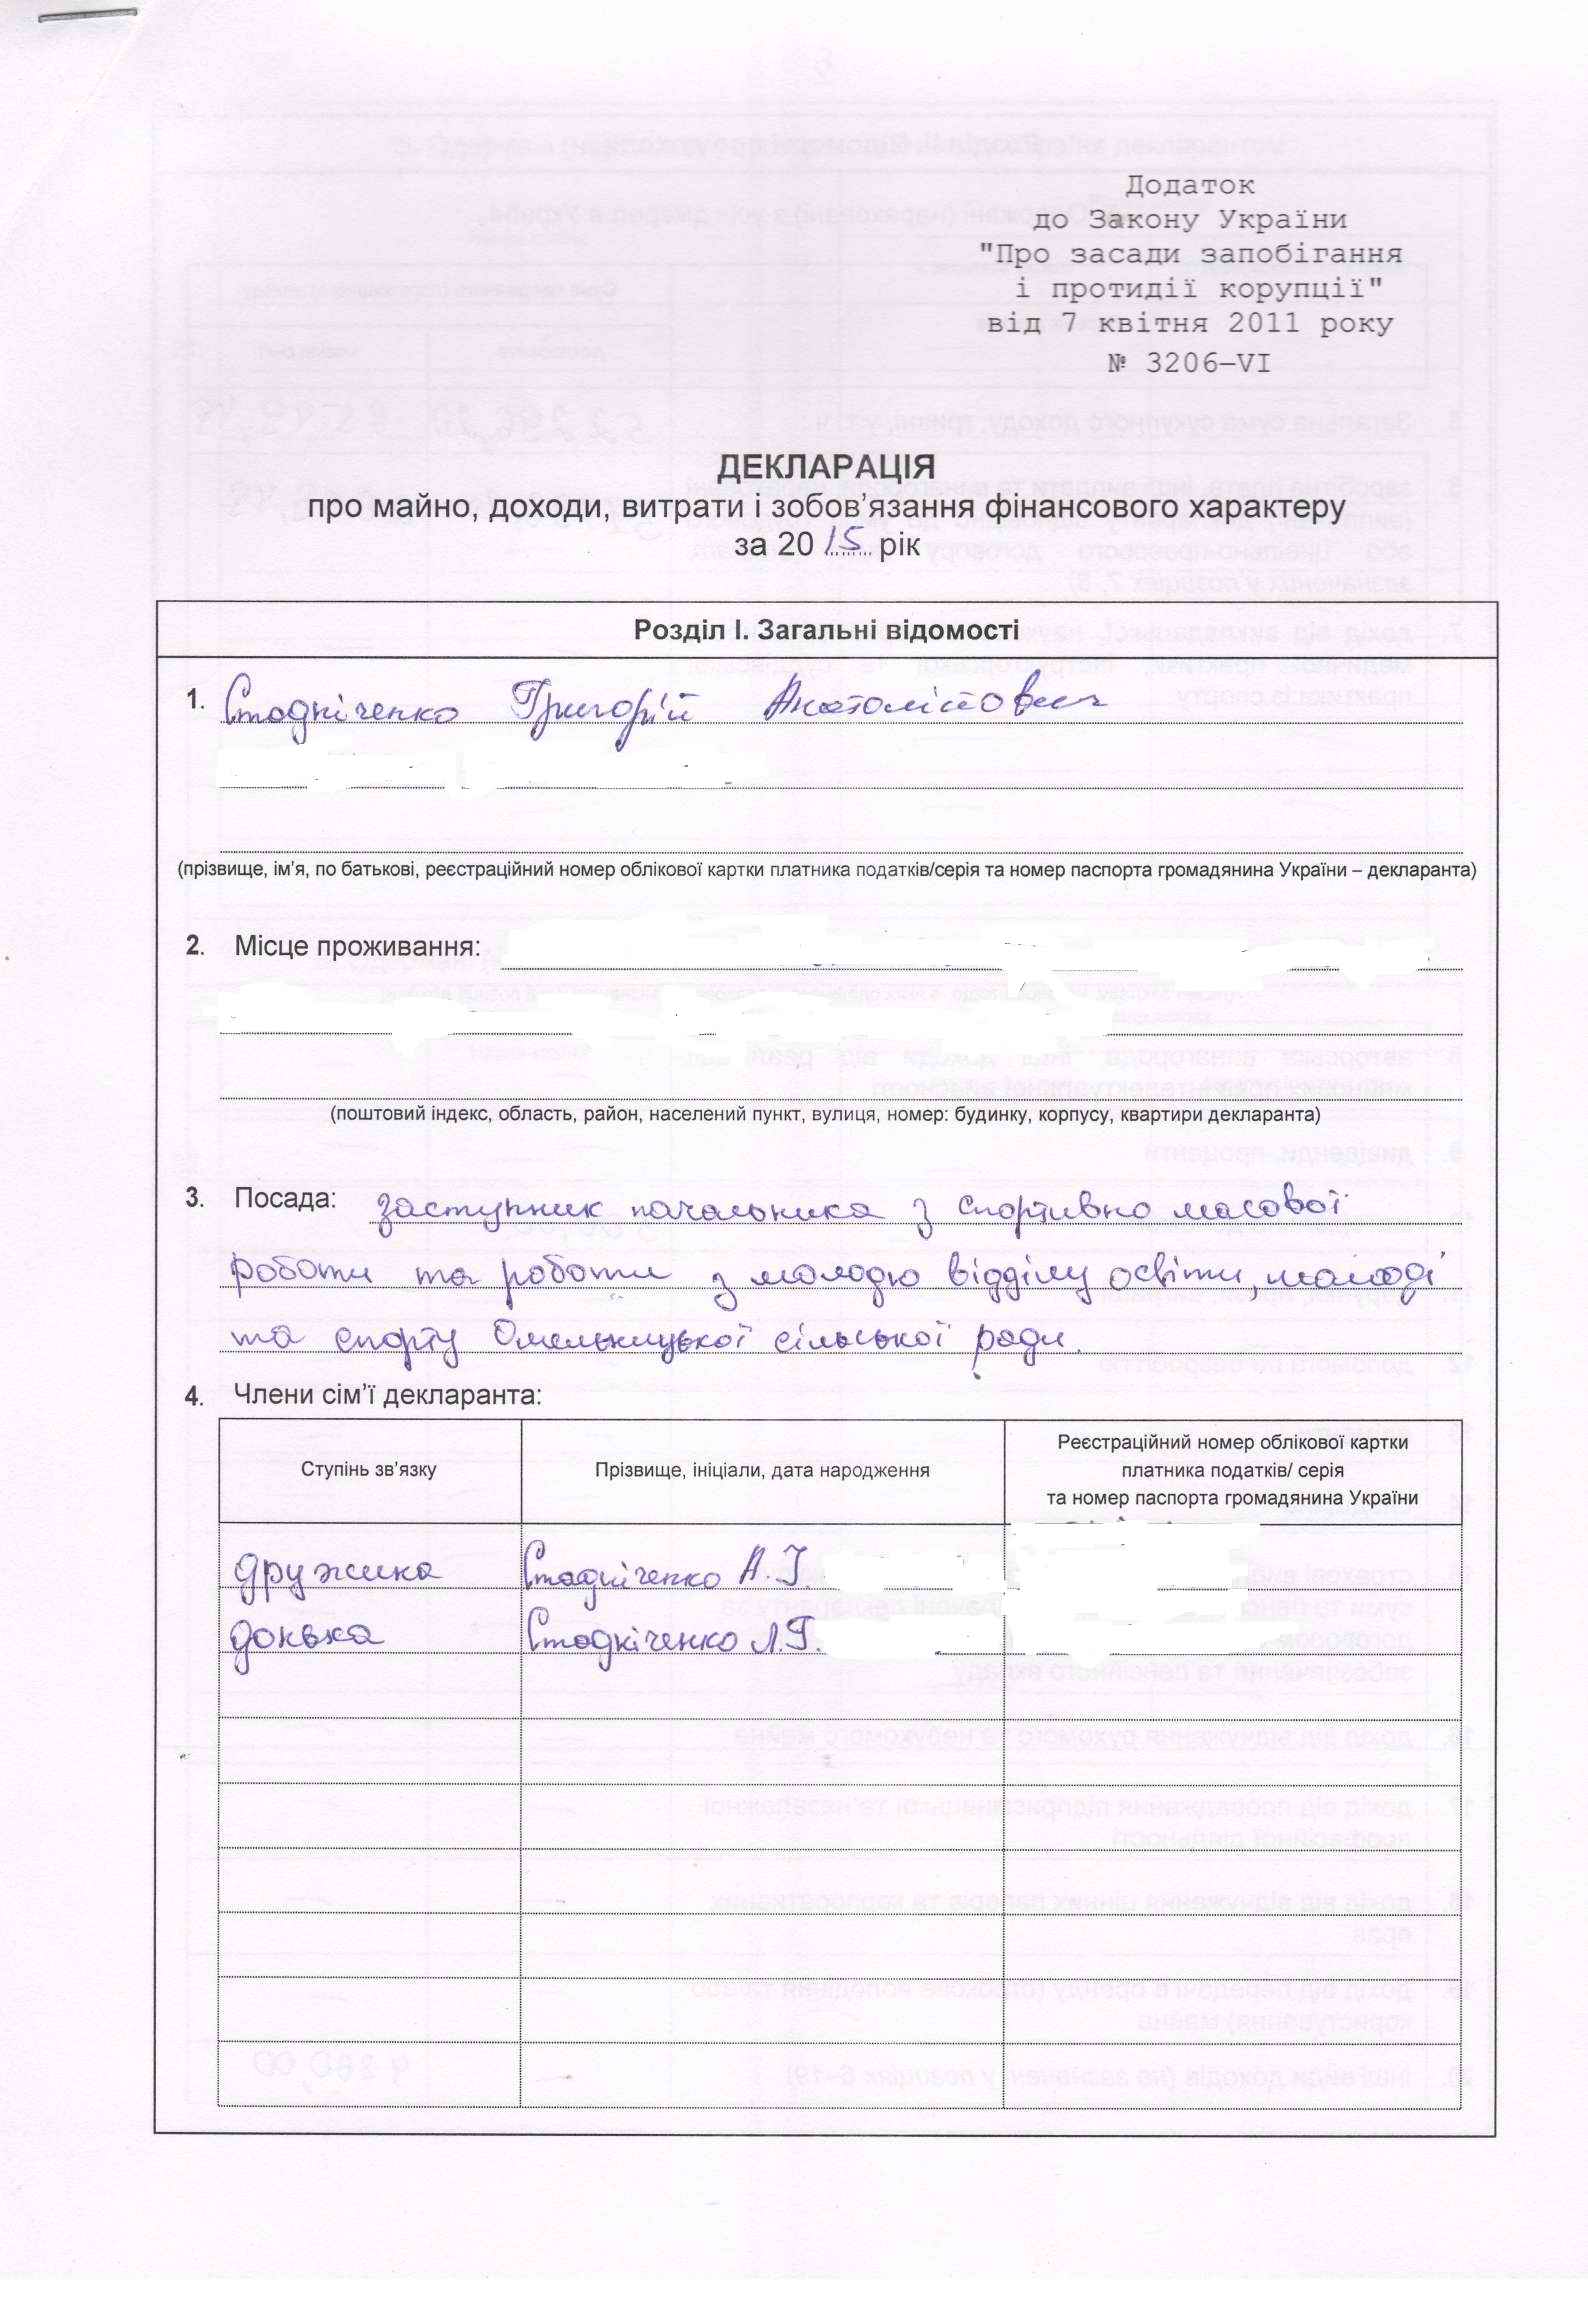 Додаток
до Закону України
"Про засади запобігання
і протидії корупції"
від 7 квітня 2011 року
№ 3206–VI
ДЕКЛАРАЦІЯ
про майно, доходи, витрати і зобов’язання фінансового характеру
за 2015 рік
Розділ I. Загальні відомості
1. Стадніченко Григорій Анатолійович
(прізвище, ім’я, по батькові, реєстраційний номер облікової картки платника податків/серія та номер паспорта громадянина України – декларанта)
2. Місце проживання:
(поштовий індекс, область, район, населений пункт, вулиця, номер: будинку, корпусу, квартири декларанта)
3. Посада: заступник начальника з спортивно масової
роботи та роботи з молодю відділу освіти, молоді
та спорту Омельницької сільської ради.
4. Члени сім’ї декларанта:
Ступінь зв’язку
Прізвище, ініціали, дата народження
Реєстраційний номер облікової картки
платника податків/ серія
та номер паспорта громадянина України
дружина Стадніченко А.І.
донька Стадніченко Л.Г.